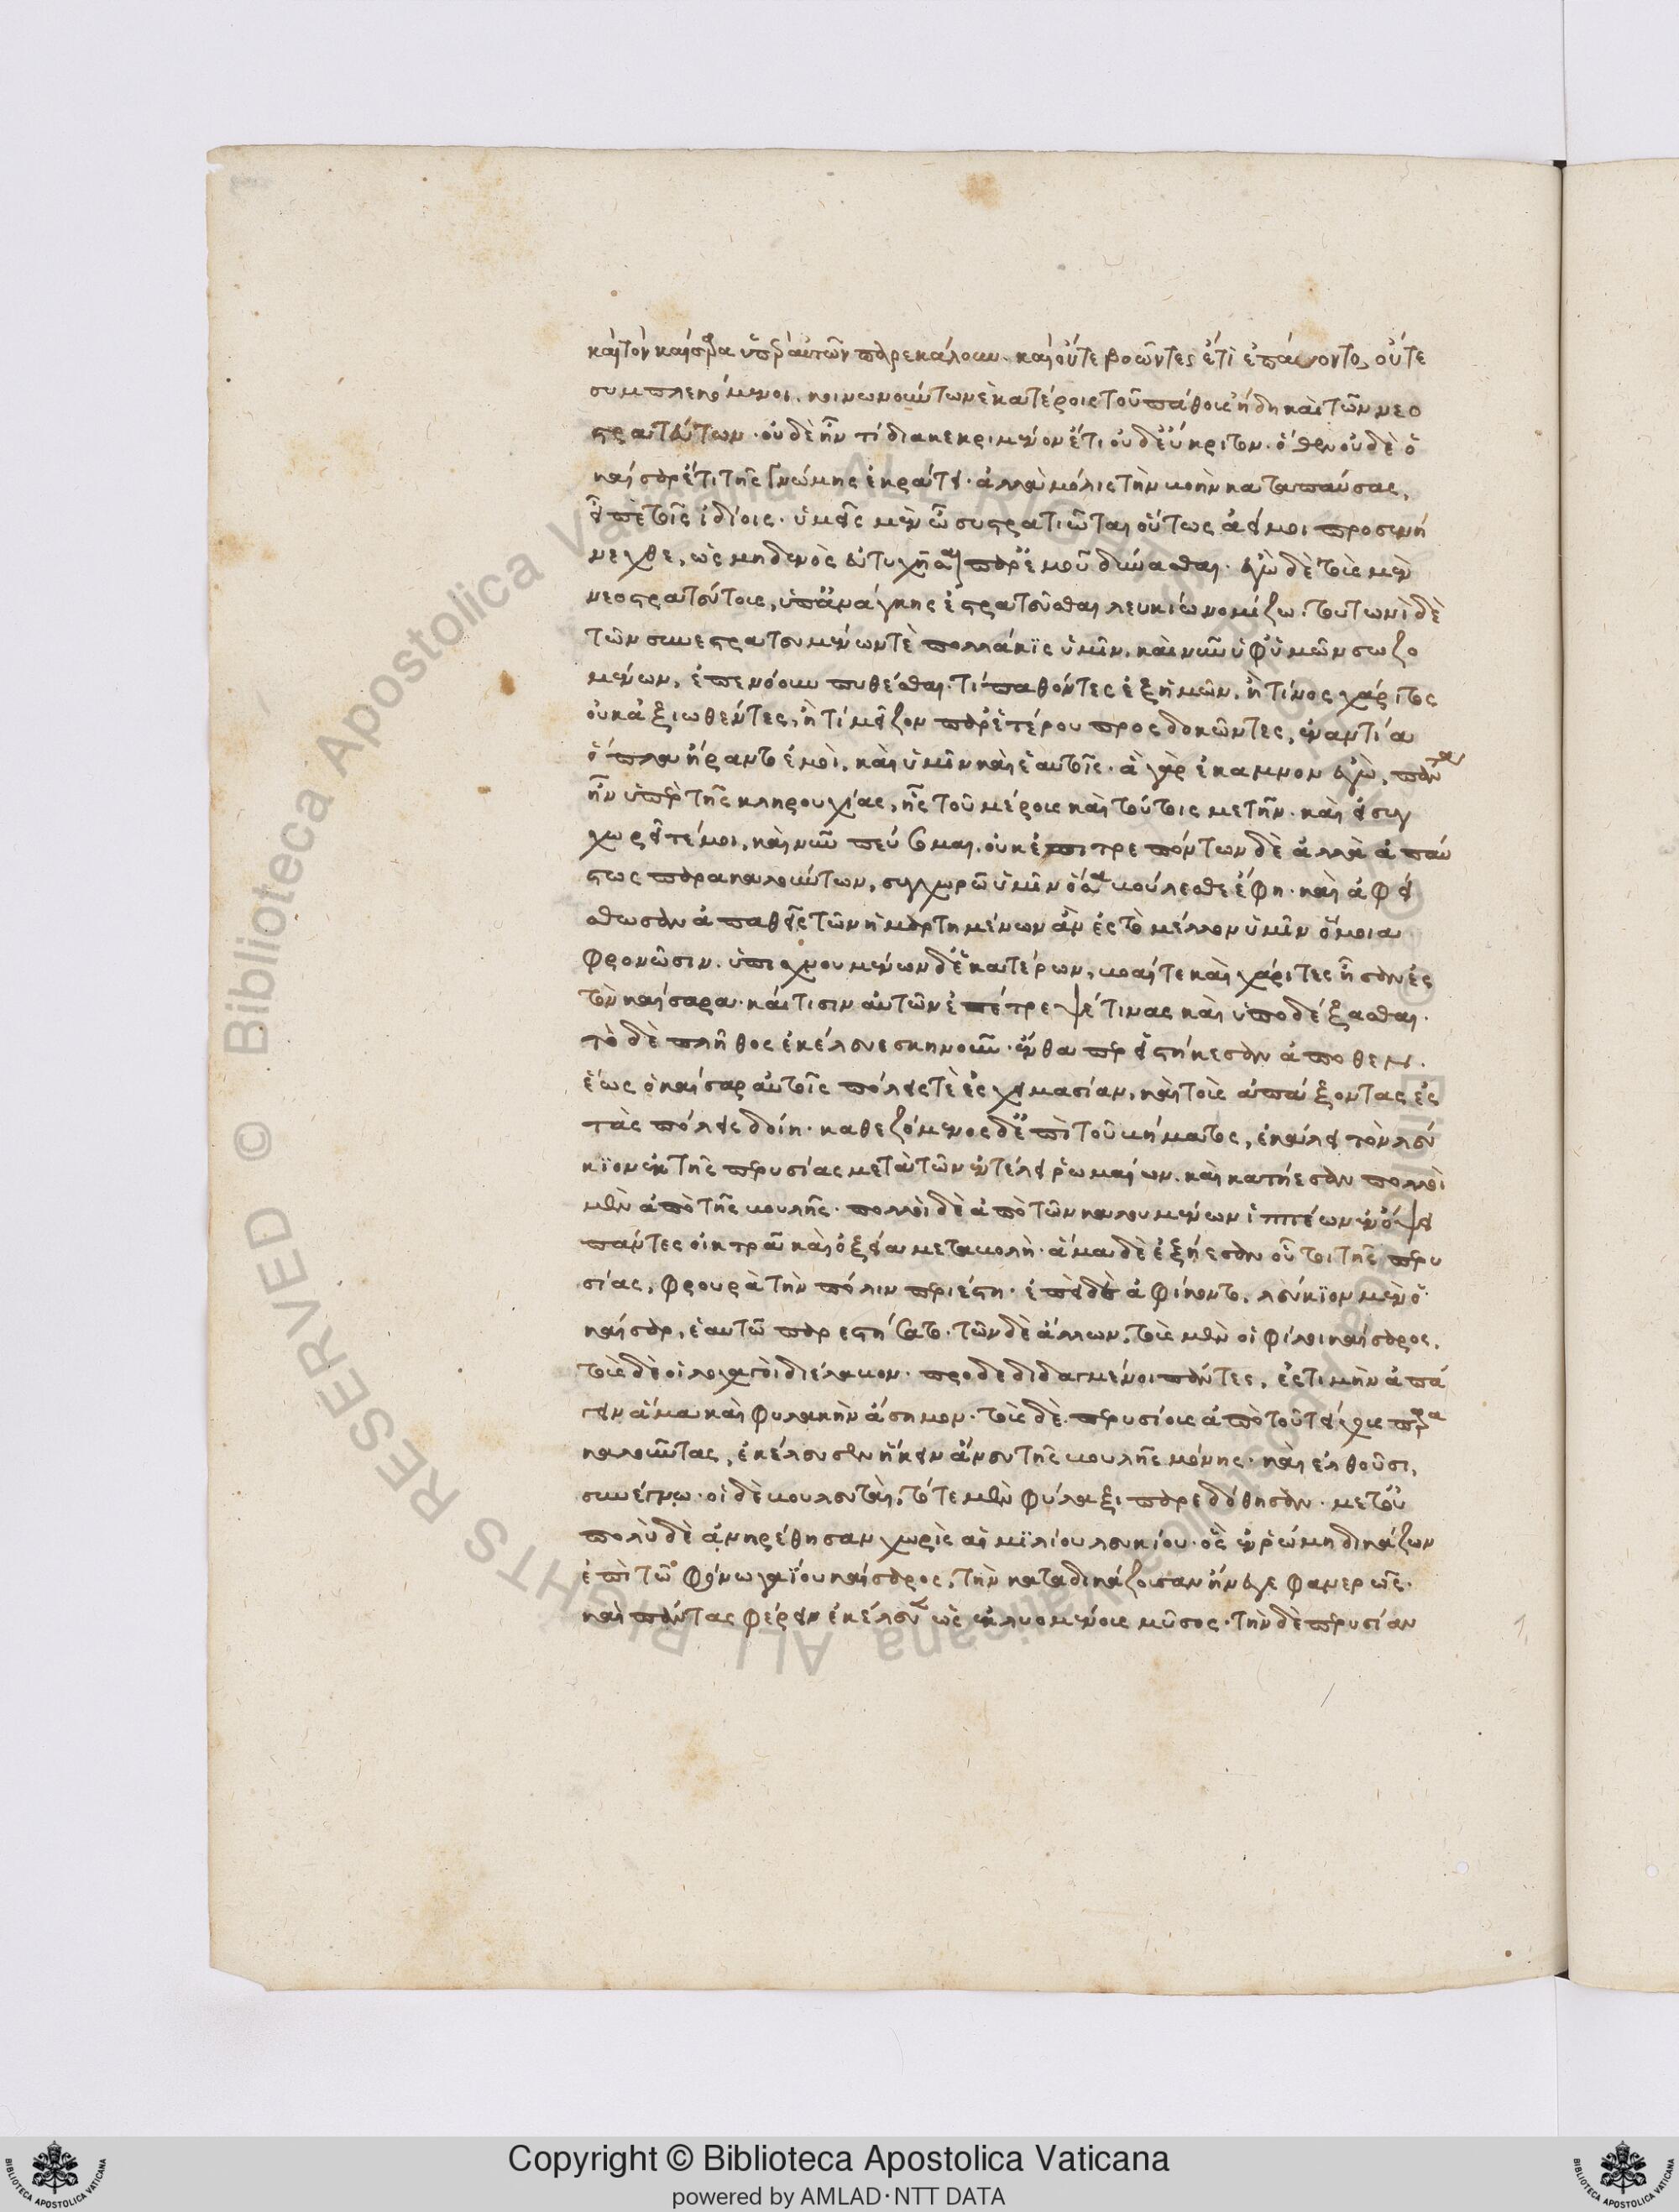 καὶ τὸν καίσαρα ὑπὲρ αὐτῶν παρεκάλουν. καὶ οὔτε βοῶντες ἔτι ἐπαύοντο, οὔτε
συμπλεκόμενοι. κοινωνούντων ἑκατέροις τοῦ πάθους ἤδη καὶ τῶν νεο
στρατεύτων. οὐδὲ ἦν τί διακεκριμένον ἔτι οὐδ' εὔκριτον. ὅθεν οὐδὲ ὁ
καίσαρ ἔτι τῆς γνώμης ἐκράτει. ἀλλὰ μόλις τὴν βοὴν καταπαύσας,
εἶπε τοῖς ἰδίοις. ὑμεῖς μὲν ὦ συστρατιῶται οὕτως ἀεί μοι προσενή
νεχθε, ὡς μηδενὸς ἀτυχῆσαι παρ' ἐμοῦ δύνασθαι. ἐγὼ δὲ τοὺς μὲν
νεοστρατεύτους, ὑπ' ἀνάγκης ἐστρατεῦσθαι λευκίω νομίζω. τουτωνὶ δὲ
τῶν συνεστρατευμένων τὲ πολλάκις ὑμῖν, καὶ νῦν ὑφ' ὑμῶν σωζο
μένων, ἐπενόουν πυθέσθαι. τί παθόντες ἐξ ἡμῶν, ἢ τίνος χάριτος
οὐκ ἀξιωθέντες, ἢ τί μεῖζον παρ' ἑτέρου προσδοκῶντες, ἐναντία
ὅπλα ἤραντο ἐμοὶ, καὶ ὑμῖν καὶ ἑαυτοῖς. ἃ γὰρ ἔκαμνον ἐγὼ, πάντα
ἦν ὑπὲρ τῆς κληρουχίας, ἧς τοῦ μέρους καὶ τούτοις μετῆν. καὶ εἰ συγ
χωρεῖτέ μοι, καὶ νῦν πεύσομαι. οὐκ ἐπιτρεπόντων δὲ ἀλλὰ ἀπαύ
στως παρακαλούντων, συγχωρῶ ὑμῖν ὅσα βούλεσθε ἔφη. καὶ ἀφεί
σθωσαν ἀπαθεῖς τῶν ἡμαρτημένων ἂν ἐς τὸ μέλλον ὑμῖν ὅμοια
φρονῶσιν. ὑπισχνουμένων δ' ἑκατέρων, βοαί τε καὶ χάριτες ἦσαν ἐς
τὸν καίσαρα. καί τισιν αὐτῶν ἐπέτρεψέ τινας καὶ ὑποδέξασθαι.
τὸ δὲ πλῆθος ἐκέλευε σκηνοῦν. ἔνθα περ εἰστήκεσαν ἄποθεν.
ἕως ὁ καίσαρ αὐτοῖς πόλεις τὲ ἐς χειμασίαν, καὶ τοὺς ἀπάξοντας ἐς
τὰς πόλεις δοίη. καθεζόμενος δ' ἐπὶ τοῦ βήματος, ἐκάλει τὸν λεύ
κιον ἐκ τῆς περυσίας μετὰ τῶν ἐν τέλει ῥωμαίων. καὶ κατῄεσαν πολλοὶ
μὲν ἀπὸ τῆς βουλῆς. πολλοὶ δὲ ἀπὸ τῶν καλουμένων ἱππέων ἐν ὄψει
πάντες οἰκτρᾶ καὶ ὀξεία μεταβολὴ. ἅμα δὲ ἐξῄεσαν οὗτοι τῆς περυ
σίας, φρουρὰ τὴν πόλιν περιέστη. ἐπεὶ δὲ ἀφίκοντο, λεύκιον μὲν ὁ
καίσαρ, ἑαυτῶ παρεστήσατο. τῶν δὲ ἄλλων, τοὺς μὲν οἱ φίλοι καίσαρος,
τοὺς δὲ οἱ λοχαγοὶ διέλαβον. προδεδιδαγμένοι πάντες, ἐς τιμὴν ἀπά
γειν ἅμα καὶ φυλακὴν ἄσημον. τοὺς δὲ περυσίους ἀπὸ τοῦ τείχους παρα
καλοῦντας, ἐκέλευσεν ἥκειν ἄνευ τῆς βουλῆς μόνης. καὶ ἐλθοῦσι,
συνέγνω. οἱ δὲ βουλευταὶ, τότε μὲν φύλαξι παρεδόθησαν. μετ' οὐ
πολὺ δὲ ἀνῃρέθησαν χωρὶς αἰμιλίου λευκίου. ὃς ἐν ῥώμῃ δικάζων
ἐπὶ τῶ φόνω γαΐου καίσαρος, τὴν καταδικάζουσαν ἤνεγκε φανερῶς.
καὶ πάντας φέρειν ἐκέλευεν ὡς ἐκλυομένους μῦσος. τὴν δὲ περυσίαν
Copyright © Biblioteca Apostolica Vaticana
powered by AMLAD·NTT DATA